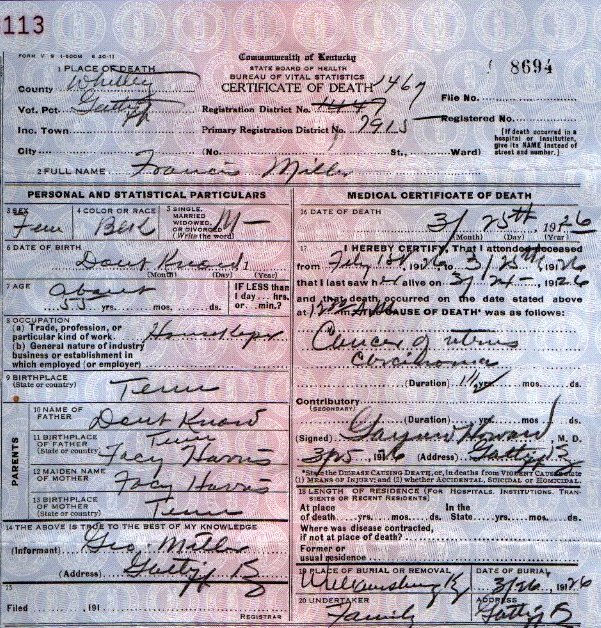 113
FORM V. S 1-500M 6 30-11
Commonwealth of Kentucky
STATE BOARD OF HEALTH
BUREAU OF VITAL STATISTICS
CERTIFICATE OF DEATH
8694
1 PLACE OF DEATH
County Whitley
Vot. Pct.
Inc. Town
City
Registration District No. 1467
File No.
Primary Registration District No. 7915
Registered No.
(No. St., Ward)
[If death occurred in a hospital or institution, give its NAME instead of street and number.]
2 FULL NAME Francis Miller
PERSONAL AND STATISTICAL PARTICULARS
3 SEX Fem
4 COLOR OR RACE
5 SINGLE, MARRIED WIDOWED, OR DIVORCED (Write the word) M
6 DATE OF BIRTH Dont Know 1
(Month) (Day) (Year)
7 AGE about 55 yrs. mos. ds.
IF LESS than 1 day... hrs. or... min.?
8 OCCUPATION
(a) Trade, profession, or particular kind of work.
(b) General nature of industry business or establishment in which employed (or employer)
9 BIRTHPLACE
(State or country) Tenn
PARENTS
10 NAME OF FATHER Dont Know
11 BIRTHPLACE OF FATHER
(State or country) Tenn
Harris
12 MAIDEN NAME OF MOTHER Harris
13 BIRTHPLACE OF MOTHER
(State or country) Tenn
14 THE ABOVE IS TRUE TO THE BEST OF MY KNOWLEDGE
(Informant) Geo. Miller
(Address)
15
Filed , 191
REGISTRAR
MEDICAL CERTIFICATE OF DEATH
16 DATE OF DEATH
3/ 25th 1926
(Month) (Day) (Year)
17 I HEREBY CERTIFY, That I attended deceased
from 1926 to 3/25th, 1926
that I last saw h alive on 3/24 - , 1926
and that death occurred on the date stated above
at 12 M. CAUSE OF DEATH* was as follows:
Cancer of uterus
(Duration) yrs. mos. ds.
Contributory
(SECONDARY)
(Duration) yrs. mos. ds.
(Signed) , M. D.
3/25 1926 (Address)
*State the DISEASE CAUSING DEATH, or, in deaths from VIOLENT CAUSES state (1) MEANS OF INJURY; and (2) whether ACCIDENTAL, SUICIDAL or HOMICIDAL.
18 LENGTH OF RESIDENCE (FOR HOSPITALS, INSTITUTIONS, TRANSIENTS OR RECENT RESIDENTS)
At place of death yrs. mos. ds. In the State yrs. mos. ds.
Where was disease contracted,
if not at place of death?
Former or
usual residence
19 PLACE OF BURIAL OR REMOVAL
Williamsburg Ky
DATE OF BURIAL
3/26, 1926
20 UNDERTAKER
Family
ADDRESS